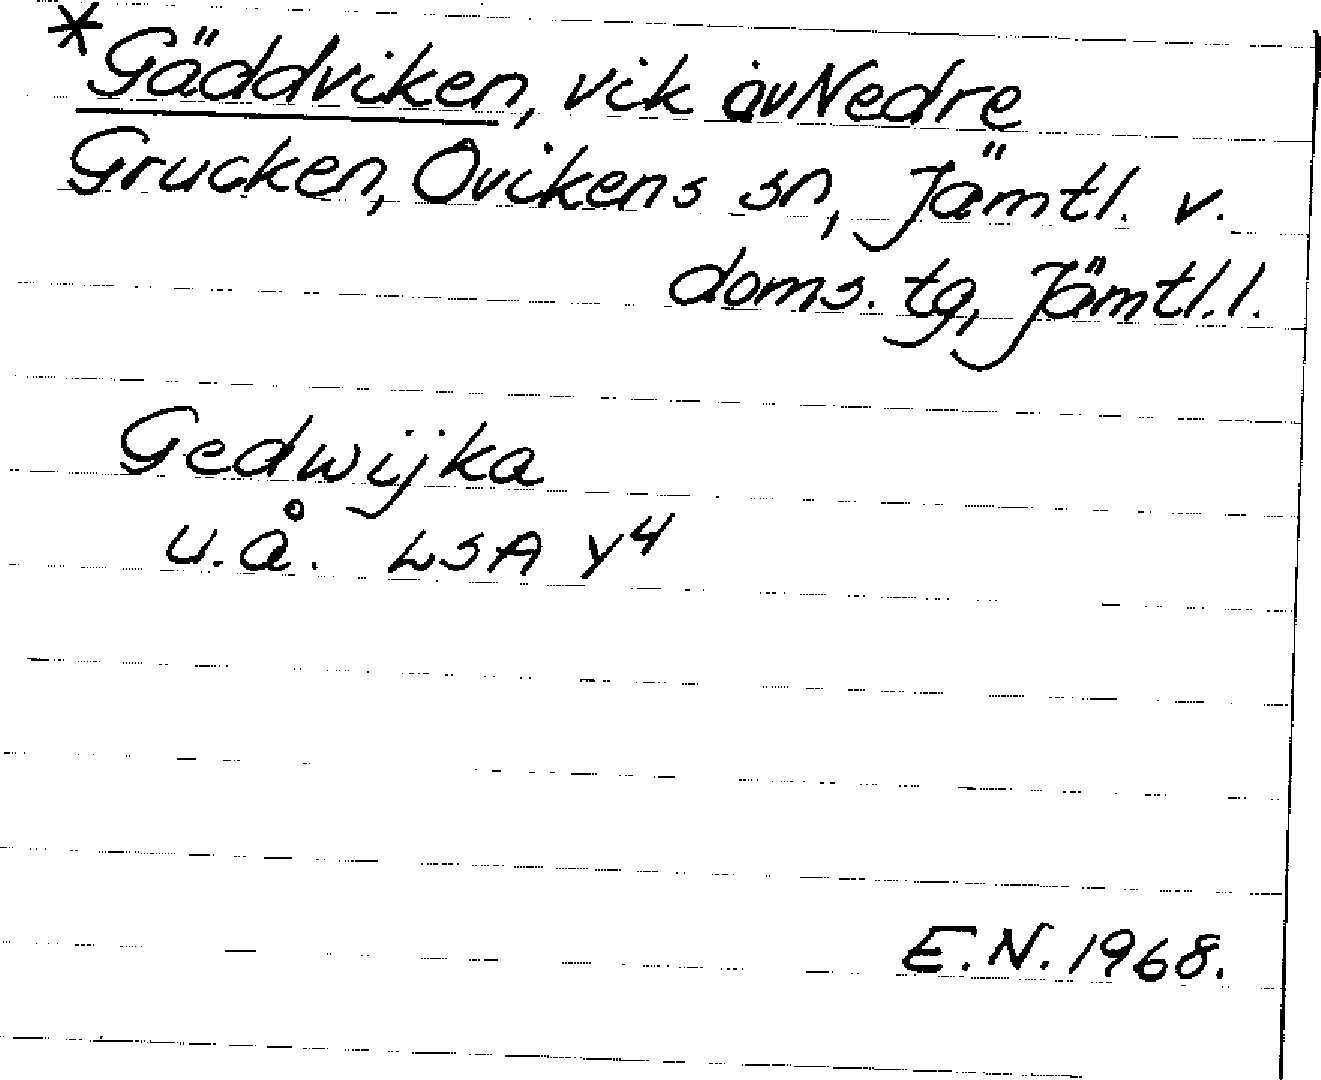 *Gäddviken, vik av Nedre
Grucken, Ovikens sn, Jämtl. v.
doms. tg, Jämtl. l.
Gedwijka
u.å. LSA Y4
E.N. 1968.